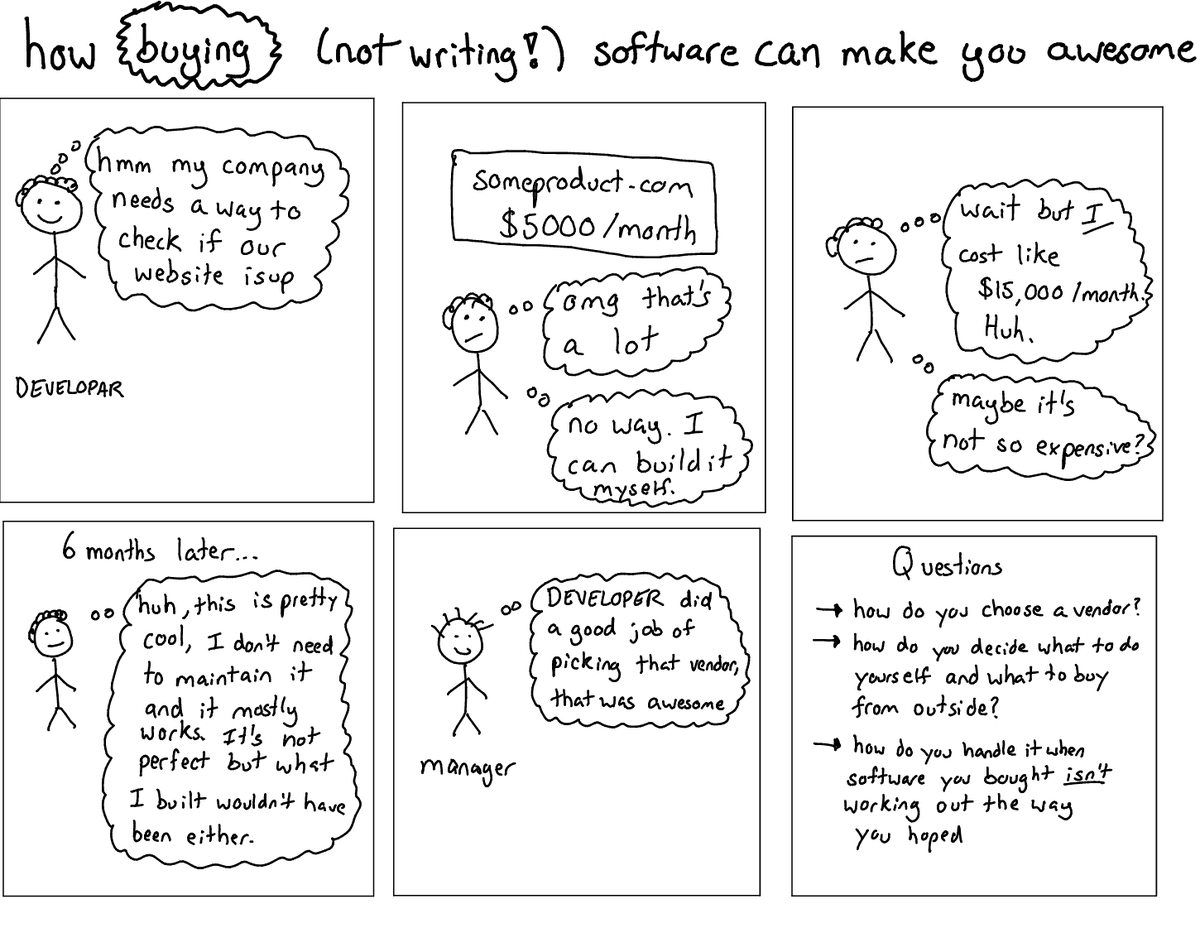 how buying (not writing!) software can make you awesome
hmm my company
needs a way to
check if our
website is up
DEVELOPAR
someproduct.com
$5000/month
omg that's
a lot
no way. I
can build it
myself.
wait but I
cost like
$15,000/month.
Huh.
maybe it's
not so expensive?
6 months later...
huh, this is pretty
cool, I don't need
to maintain it
and it mostly
works. It's not
perfect but what
I built wouldn't have
been either.
DEVELOPER did
a good job of
picking that vendor,
that was awesome
manager
Questions
→ how do you choose a vendor?
→ how do you decide what to do
yourself and what to buy
from outside?
→ how do you handle it when
software you bought isn't
working out the way
you hoped